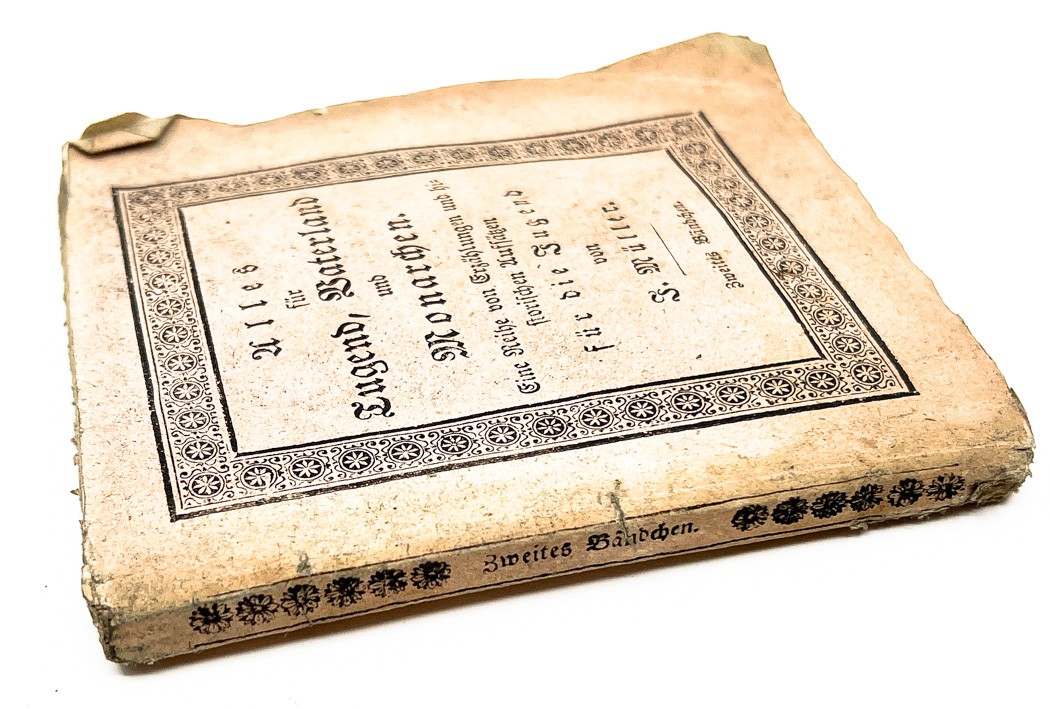 Alles
für
Tugend, Vaterland
und
Monarchen.
Eine Reihe von Erzählungen und hi-
storischen
für die Jugend
von
F. Müller.
Zweites Bändchen.
Zweites Bändchen.